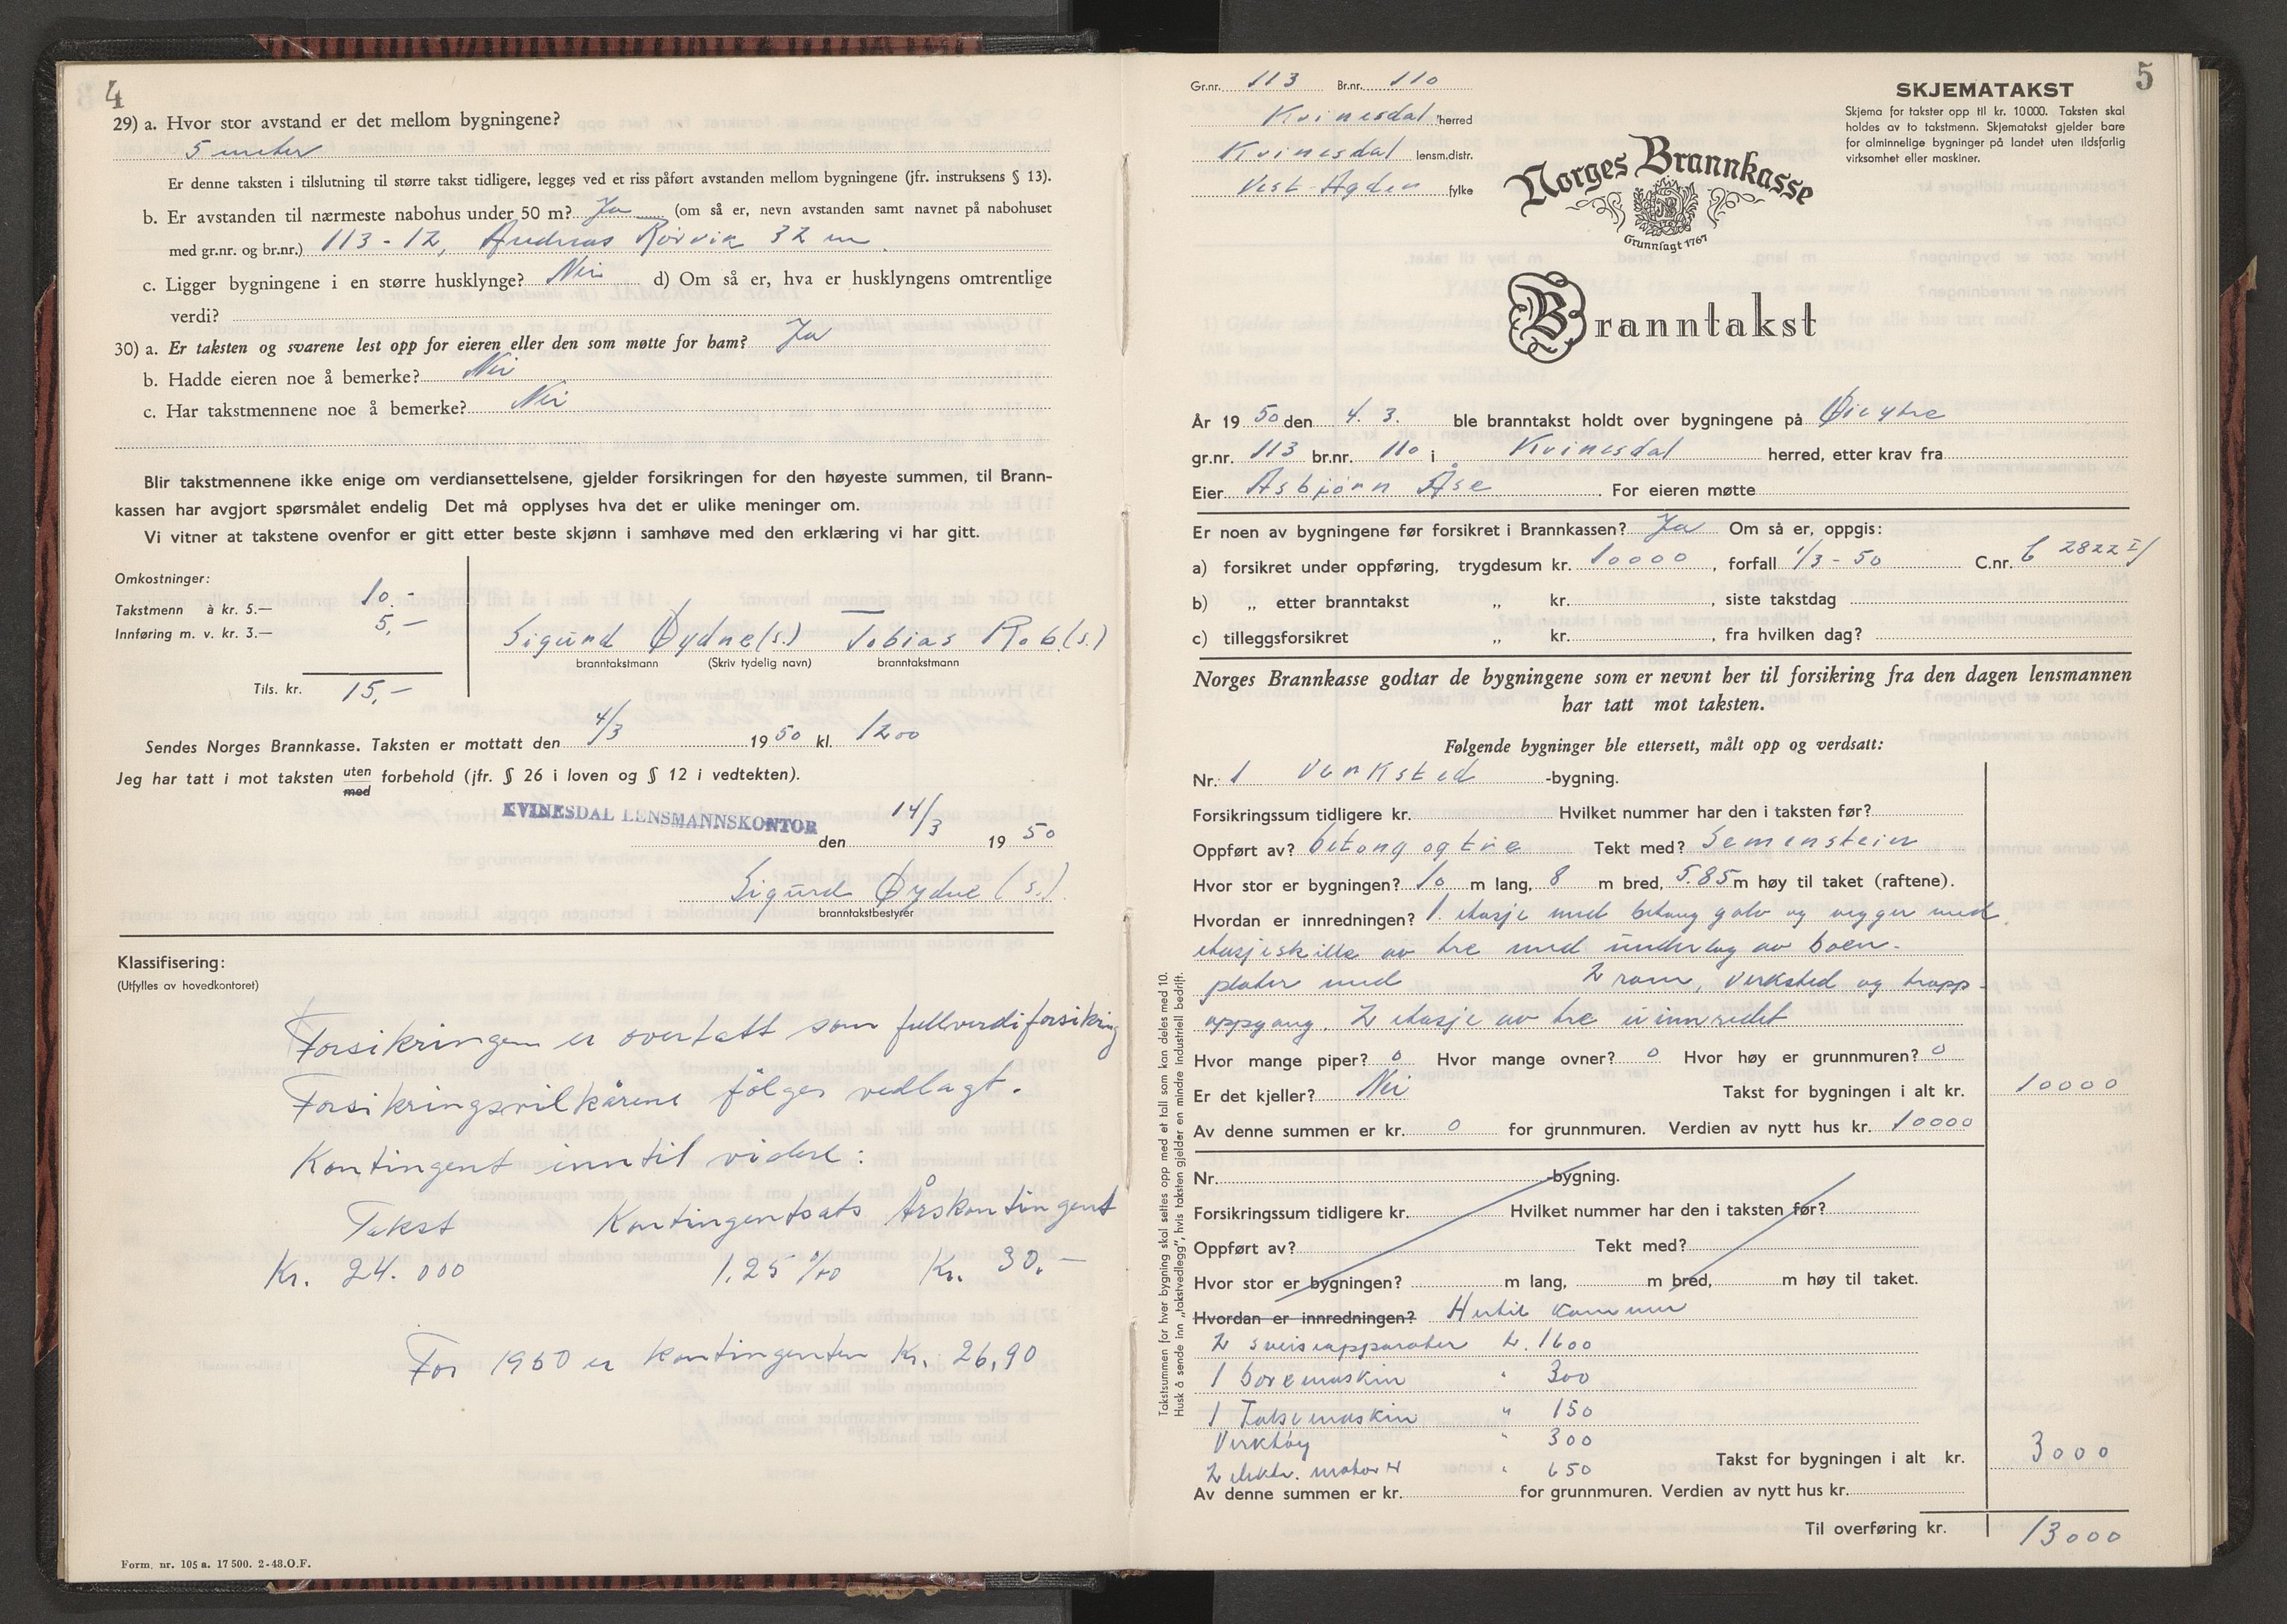 4
29) a. Hvor stor avstand er det mellom bygningene?
5 meter
Er denne taksten i tilslutning til større takst tidligere, legges ved et riss påført avstanden mellom bygningene (jfr. instruksens § 13).
b. Er avstanden til nærmeste nabohus under 50 m? Ja (om så er, nevn avstanden samt navnet på nabohuset
med gr.nr. og br.nr.) 113-12, Andreas Rørvik 32 m.
c. Ligger bygningene i en større husklynge? Nei d) Om så er, hva er husklyngens omtrentlige
verdi?
30) a. Er taksten og svarene lest opp for eieren eller den som møtte for ham? Ja
b. Hadde eieren noe å bemerke? Nei
c. Har takstmennene noe å bemerke? Nei
Blir takstmennene ikke enige om verdiansettelsene, gjelder forsikringen for den høyeste summen, til Brann-
kassen har avgjort spørsmålet endelig Det må opplyses hva det er ulike meninger om.
Vi vitner at takstene ovenfor er gitt etter beste skjønn i samhøve med den erklæring vi har gitt.
Omkostninger:
Takstmenn à kr. 5.— 10.-
Innføring m. v. kr. 3.— 5,-
Sigurd Øydne (s.) Tobias Rob. (s.)
branntakstmann (Skriv tydelig navn) branntakstmann
Tils. kr. 15,-
Sendes Norges Brannkasse. Taksten er mottatt den 4/3 1950 kl. 1200
Jeg har tatt i mot taksten uten forbehold (jfr. § 26 i loven og § 12 i vedtekten).
med
KVINESDAL LENSMANNSKONTOR den 14/3 1950
Sigurd Øydne (s.)
branntakstbestyrer
Klassifisering:
(Utfylles av hovedkontoret)
Forsikringen er overtatt som fullverdiforsikring
Forsikringsvilkårene følger vedlagt.
Kontingent inntil videre:
Takst Kontingentsats Årskontingent
Kr. 24.000 1,25 ‰ Kr. 30.-
For 1950 er kontingenten Kr. 26,90
Form. nr. 105 a. 17 500. 2-48.O.F.
5
Gr.nr. 113 Br.nr. 110
Kvinesdal herred
Kvinesdal lensm.distr.
Vest-Agder fylke
SKJEMATAKST
Skjema for takster opp til kr. 10000. Taksten skal
holdes av to takstmenn. Skjematakst gjelder bare
for alminnelige bygninger på landet uten ildsfarlig
virksomhet eller maskiner.
Norges Brannkasse
Grunnlagt 1767
Branntakst
År 1950 den 4. 3. ble branntakst holdt over bygningene på Øie ytre
gr.nr. 113 br.nr. 110 i Kvinesdal herred, etter krav fra
Eier Asbjørn Åse For eieren møtte
Er noen av bygningene før forsikret i Brannkassen? Ja Om så er, oppgis:
a) forsikret under oppføring, trygdesum kr. 10000, forfall 1/3-50 C.nr. 6 2822 I/
b) „ etter branntakst „ kr. , siste takstdag
c) tilleggsforsikret „ kr. , fra hvilken dag?
Norges Brannkasse godtar de bygningene som er nevnt her til forsikring fra den dagen lensmannen
har tatt mot taksten.
Følgende bygninger ble ettersett, målt opp og verdsatt:
Nr. 1 Verksted -bygning.
Forsikringssum tidligere kr. Hvilket nummer har den i taksten før?
Oppført av? betong og tre Tekt med? Sementstein
Hvor stor er bygningen? 10 m lang, 8 m bred, 5.85 m høy til taket (raftene).
Hvordan er innredningen? 1. etasje med betong golv og vegger med
etasjeskille av tre med underlag av boen-
plater med 2 rom, verksted og trapp-
oppgang. 2 etasje av tre uinnredet
Hvor mange piper? 0 Hvor mange ovner? 0 Hvor høy er grunnmuren? 0
Er det kjeller? Nei Takst for bygningen i alt kr. 10000
Av denne summen er kr. 0 for grunnmuren. Verdien av nytt hus kr. 10000
Nr. -bygning.
Forsikringssum tidligere kr. Hvilket nummer har den i taksten før?
Oppført av? Tekt med?
Hvor stor er bygningen? m lang, m bred, m høy til taket.
Hvordan er innredningen? Hertil kommer
2 sveiseapparater kr. 1600
1 boremaskin " 300
1 maskin " 150
Verktøy " 300
2 elektr. motorer " 650
Takst for bygningen i alt kr. 3000
Av denne summen er kr. for grunnmuren. Verdien av nytt hus kr.
Til overføring kr. 13000
Takstsummen for hver bygning skal settes opp med et tall som kan deles med 10.
Husk å sende inn „takstvedlegg", hvis taksten gjelder en mindre industriell bedrift.